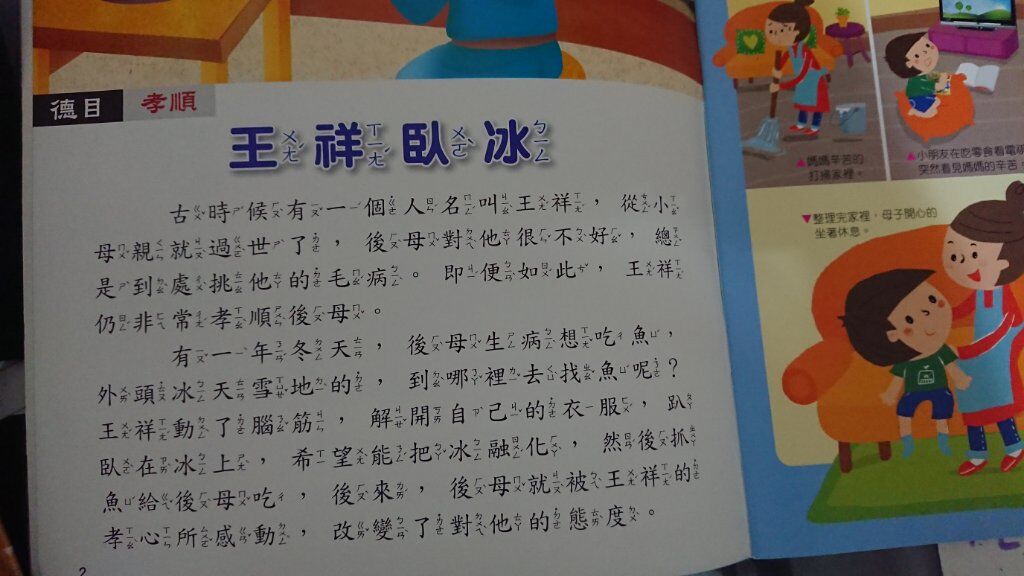 德目 孝順
王祥臥冰
古時候有一個人名叫王祥，從小
母親就過世了，後母對他很不好，總
是到處挑他的毛病。即便如此，王祥
仍非常孝順後母。
有一年冬天，後母生病想吃魚，
外頭冰天雪地的，到哪裡去找魚呢？
王祥動了腦筋，解開自己的衣服，趴
臥在冰上，希望能把冰融化，然後抓
魚給後母吃，後來，後母就被王祥的
孝心所感動，改變了對他的態度。
2
▲媽媽辛苦的
打掃家裡。
▲小朋友在吃零食看電視
突然看見媽媽的辛苦
▼整理完家裡，母子開心的
坐著休息。